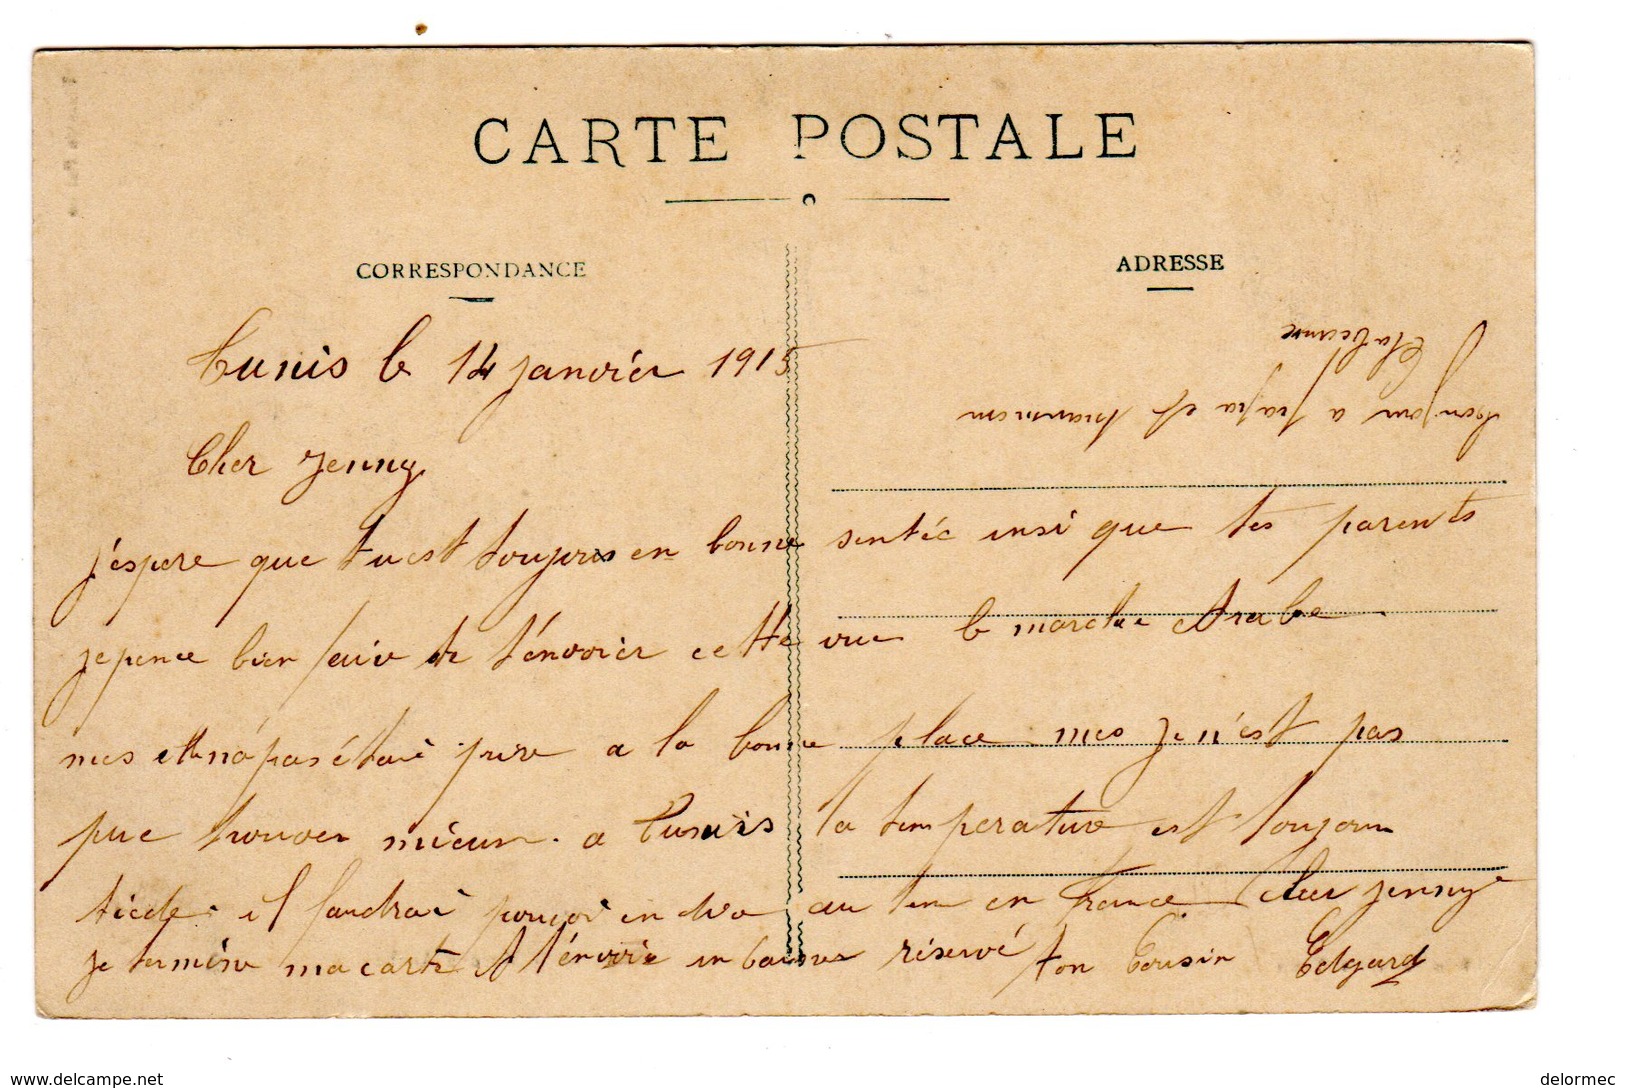 CARTE POSTALE
CORRESPONDANCE
ADRESSE
Tunis le 14 janviér 1915
Cher Jenny
j'espere que tu est toujours en bonne sentée insi que tes parents
je pence bien faire de t'envoiér cette vue le marche Arabe
mes elle n'a pas étai prise a la bonne place mes je n'est pas
pue trouver mieux. a Tunis la temperature est toujour
tiede. il faudrai pouvoi en dire au tem en France. Cher Jenny
je termine ma carte et t'envoie un baiser réservé ton Cousin Edgard
bonjour a papa et maman
Etabeaune
delcampe.net
delormec